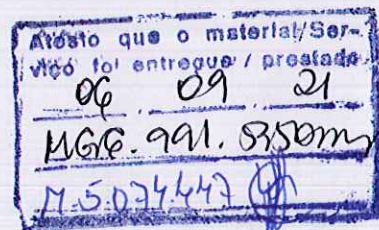 Atesto que o material/Ser-
viço foi entregue / prestado
06 09 21
M 5.074.447